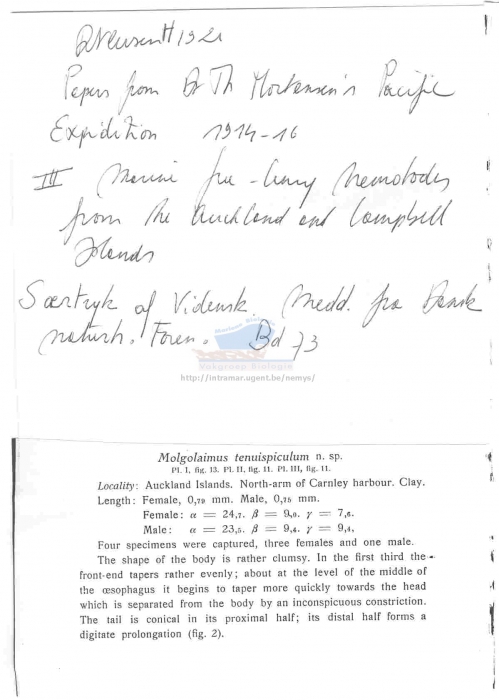 Ditlevsen H 1921
Papers from Dr Th Mortensen's Pacific
Expedition 1914-16
III Marine free-living nematodes
from the Auckland and Campbell
Islands
Særtryk af Vidensk. Medd. fra Dansk
naturh. Foren. Bd 73
Vakgroep Biologie
http://intramar.ugent.be/nemys/
Molgolaimus tenuispiculum n. sp.
Pl. I, fig. 13. Pl. II, fig. 11. Pl. III, fig. 11.
Locality: Auckland Islands. North-arm of Carnley harbour. Clay.
Length: Female, 0,79 mm. Male, 0,75 mm.
Female: α = 24,7. β = 9,0. γ = 7,6.
Male: α = 23,5. β = 9,4. γ = 9,4,
Four specimens were captured, three females and one male.
The shape of the body is rather clumsy. In the first third the
front-end tapers rather evenly; about at the level of the middle of
the œsophagus it begins to taper more quickly towards the head
which is separated from the body by an inconspicuous constriction.
The tail is conical in its proximal half; its distal half forms a
digitate prolongation (fig. 2).